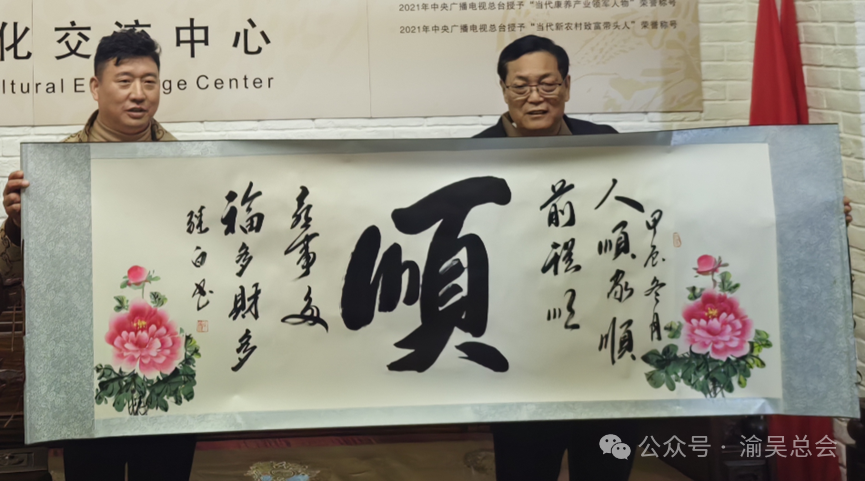 2021年中央广播电视总台授予“当代康养产业领军人物”荣誉称号
2021年中央广播电视总台授予“当代新农村致富带头人”荣誉称号
化交流中心
ltural E
ge Center
甲辰冬月
人順家順
前程順
順
喜事多
福多財多
公众号·渝吴总会